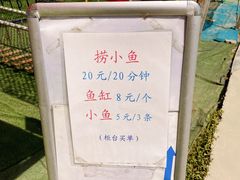 捞小鱼
20元/20分钟
鱼缸 8元/个
小鱼 5元/3条
(柜台买单)